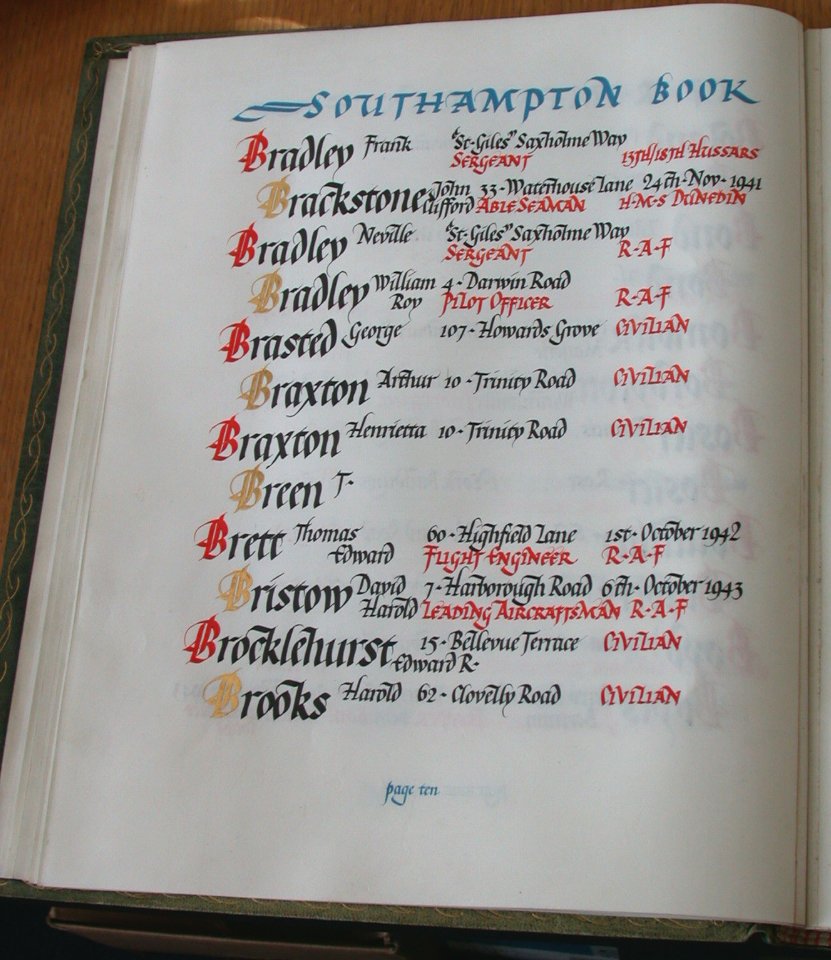 SOUTHAMPTON BOOK
Bradley Frank "St·Giles" Saxholme Way
SERGEANT 13TH/18TH HUSSARS
Brackstone John 33·Waterhouse Lane 24th·Nov·1941
Clifford ABLE SEAMAN H·M·S DUNEDIN
Bradley Neville "St·Giles" Saxholme Way
SERGEANT R·A·F
Bradley William 4·Darwin Road
Roy PILOT OFFICER R·A·F
Brasted George 107·Howards Grove CIVILIAN
Braxton Arthur 10·Trinity Road CIVILIAN
Braxton Henrietta 10·Trinity Road CIVILIAN
Breen T·
Brett Thomas 60·Highfield Lane 1st·October 1942
Edward FLIGHT ENGINEER R·A·F
Bristow David 7·Harborough Road 6th·October 1943
Harold LEADING AIRCRAFTSMAN R·A·F
Brocklehurst 15·Bellevue Terrace CIVILIAN
Edward R·
Brooks Harold 62·Clovelly Road CIVILIAN
page ten